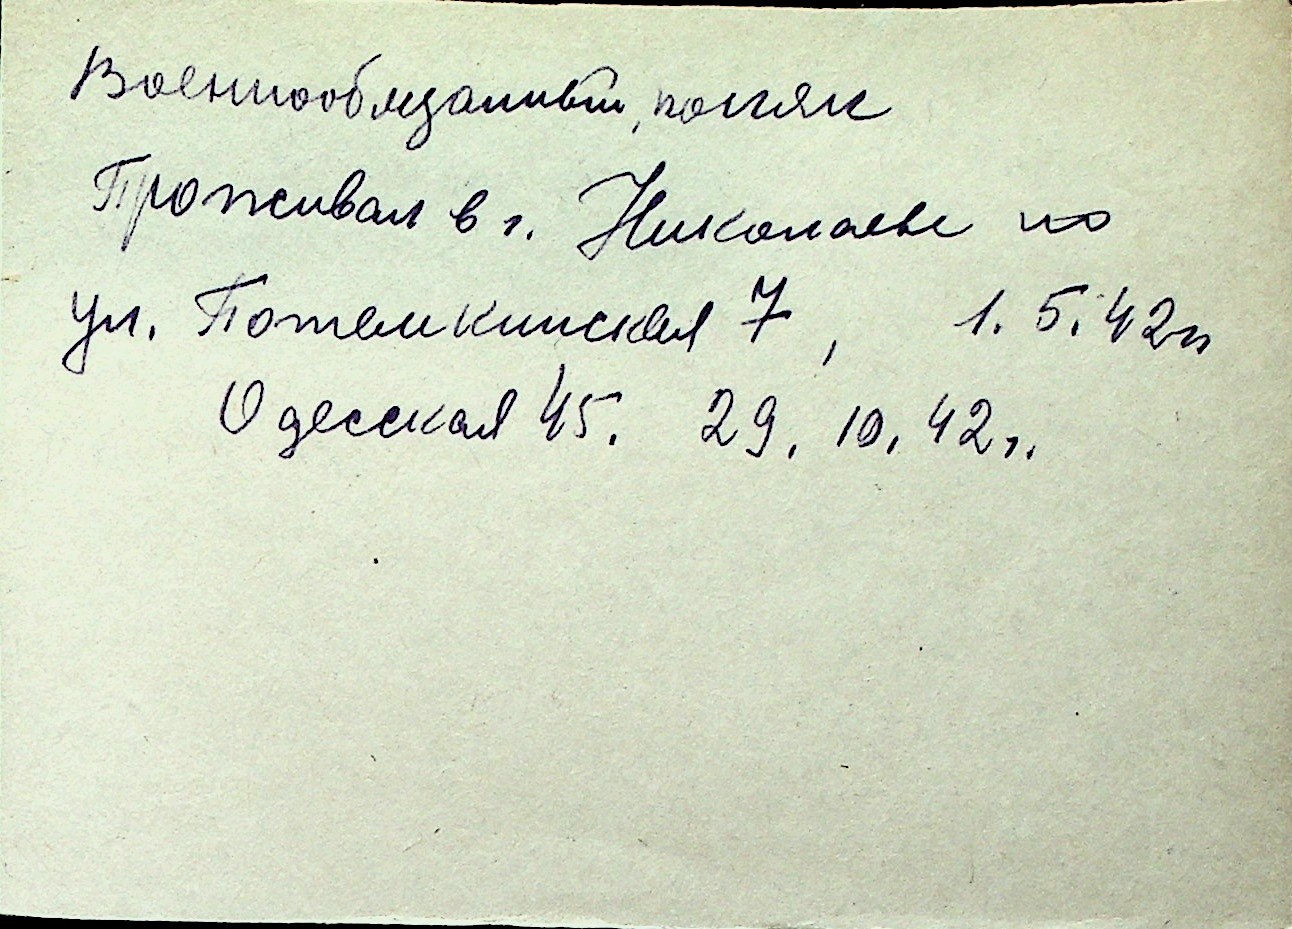 Военнообязанный, поляк
Проживал в г. Николаеве по
ул. Потемкинская 7, 1.5.42г
Одесская 45. 29.10.42г.